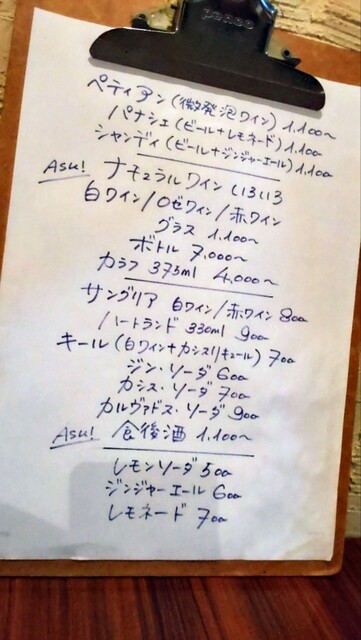 ペティアン(微発泡ワイン) 1.100~
パナシェ(ビール+レモネード) 1.100
シャンディ(ビール+ジンジャーエール) 1.100
ASK! ナチュラルワイン いろいろ
白ワイン/ロゼワイン/赤ワイン
グラス 1.100~
ボトル 7,000~
カラフ 375ml 4,000~
サングリア 白ワイン/赤ワイン 800
ハートランド 330ml 900
キール(白ワイン+カシスリキュール) 700
ジン・ソーダ 600
カシス・ソーダ 700
カルヴァドス・ソーダ 900
ASK! 食後酒 1,100~
レモンソーダ 500
ジンジャーエール 600
レモネード 700